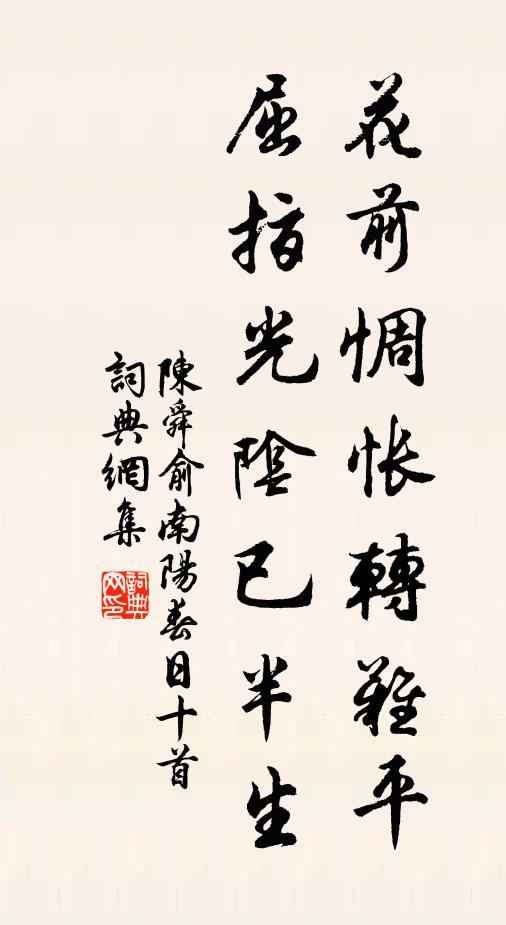 花前惆悵轉難平
屈指光陰已半生
陳舜俞南陽春日十首
詞典網集
詞典
网印